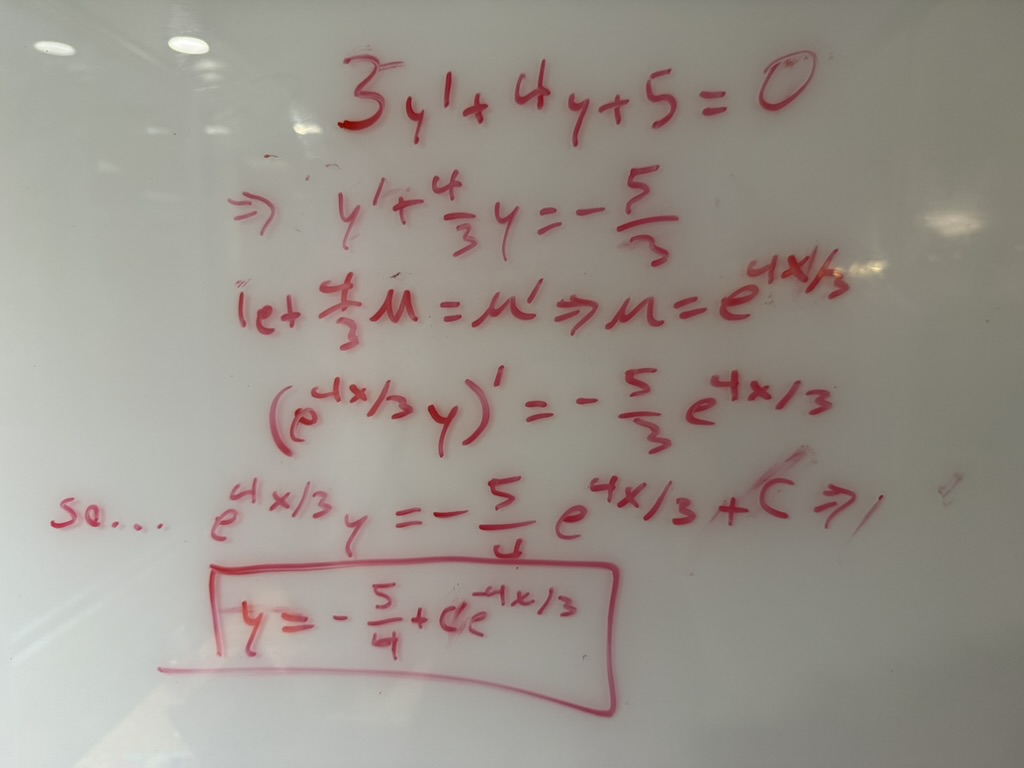 3y' + 4y + 5 = 0
⇒ y' + 4/3 y = - 5/3
let 4/3 μ = μ' ⇒ μ = e^{4x/3}
(e^{4x/3} y)' = - 5/3 e^{4x/3}
so... e^{4x/3} y = - 5/4 e^{4x/3} + C ⇒
y = - 5/4 + Ce^{-4x/3}